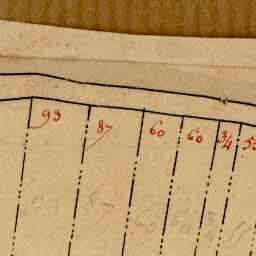 93 87 60 60 3/4